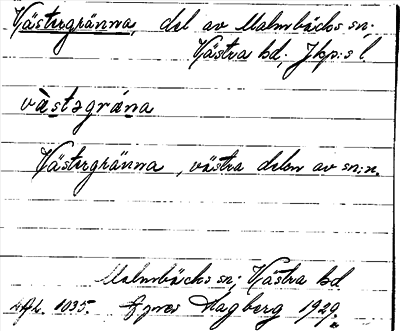 Västergränna, del av Malmbäcks sn;
Västra hd. Jkp:s l.
västəgräna
Västergränna, västra delen av sn:n.
Malmbäcks sn; Västra hd
1035. Hagberg 1929.